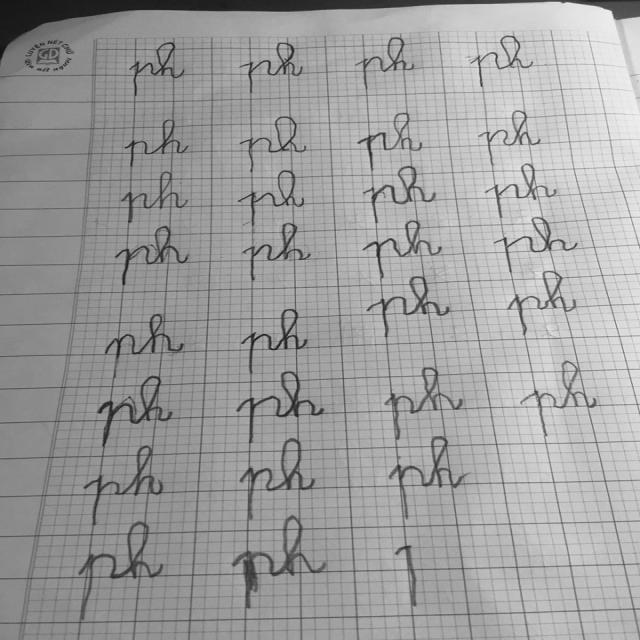 ph ph ph ph
ph ph ph ph
ph ph ph ph
ph ph ph ph
ph ph
ph ph
ph ph ph ph
ph ph ph
ph ph